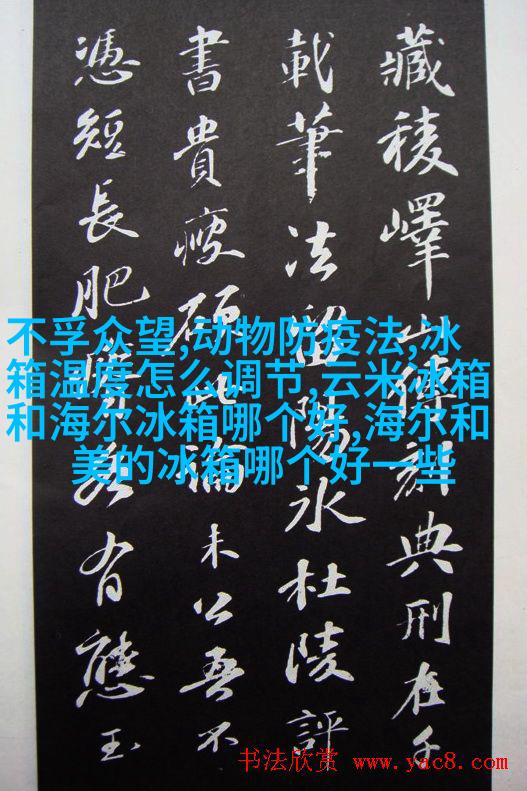 藏稜嶧山傳刻典刑在千
載筆法留陽冰杜陵評
書貴瘦硬此論未公吾不
憑短長肥各有態玉
不孚众望,动物防疫法,冰
箱温度怎么调节,云米冰箱
和海尔冰箱哪个好,海尔和
美的冰箱哪个好一些
书法欣赏 www.yac8.com